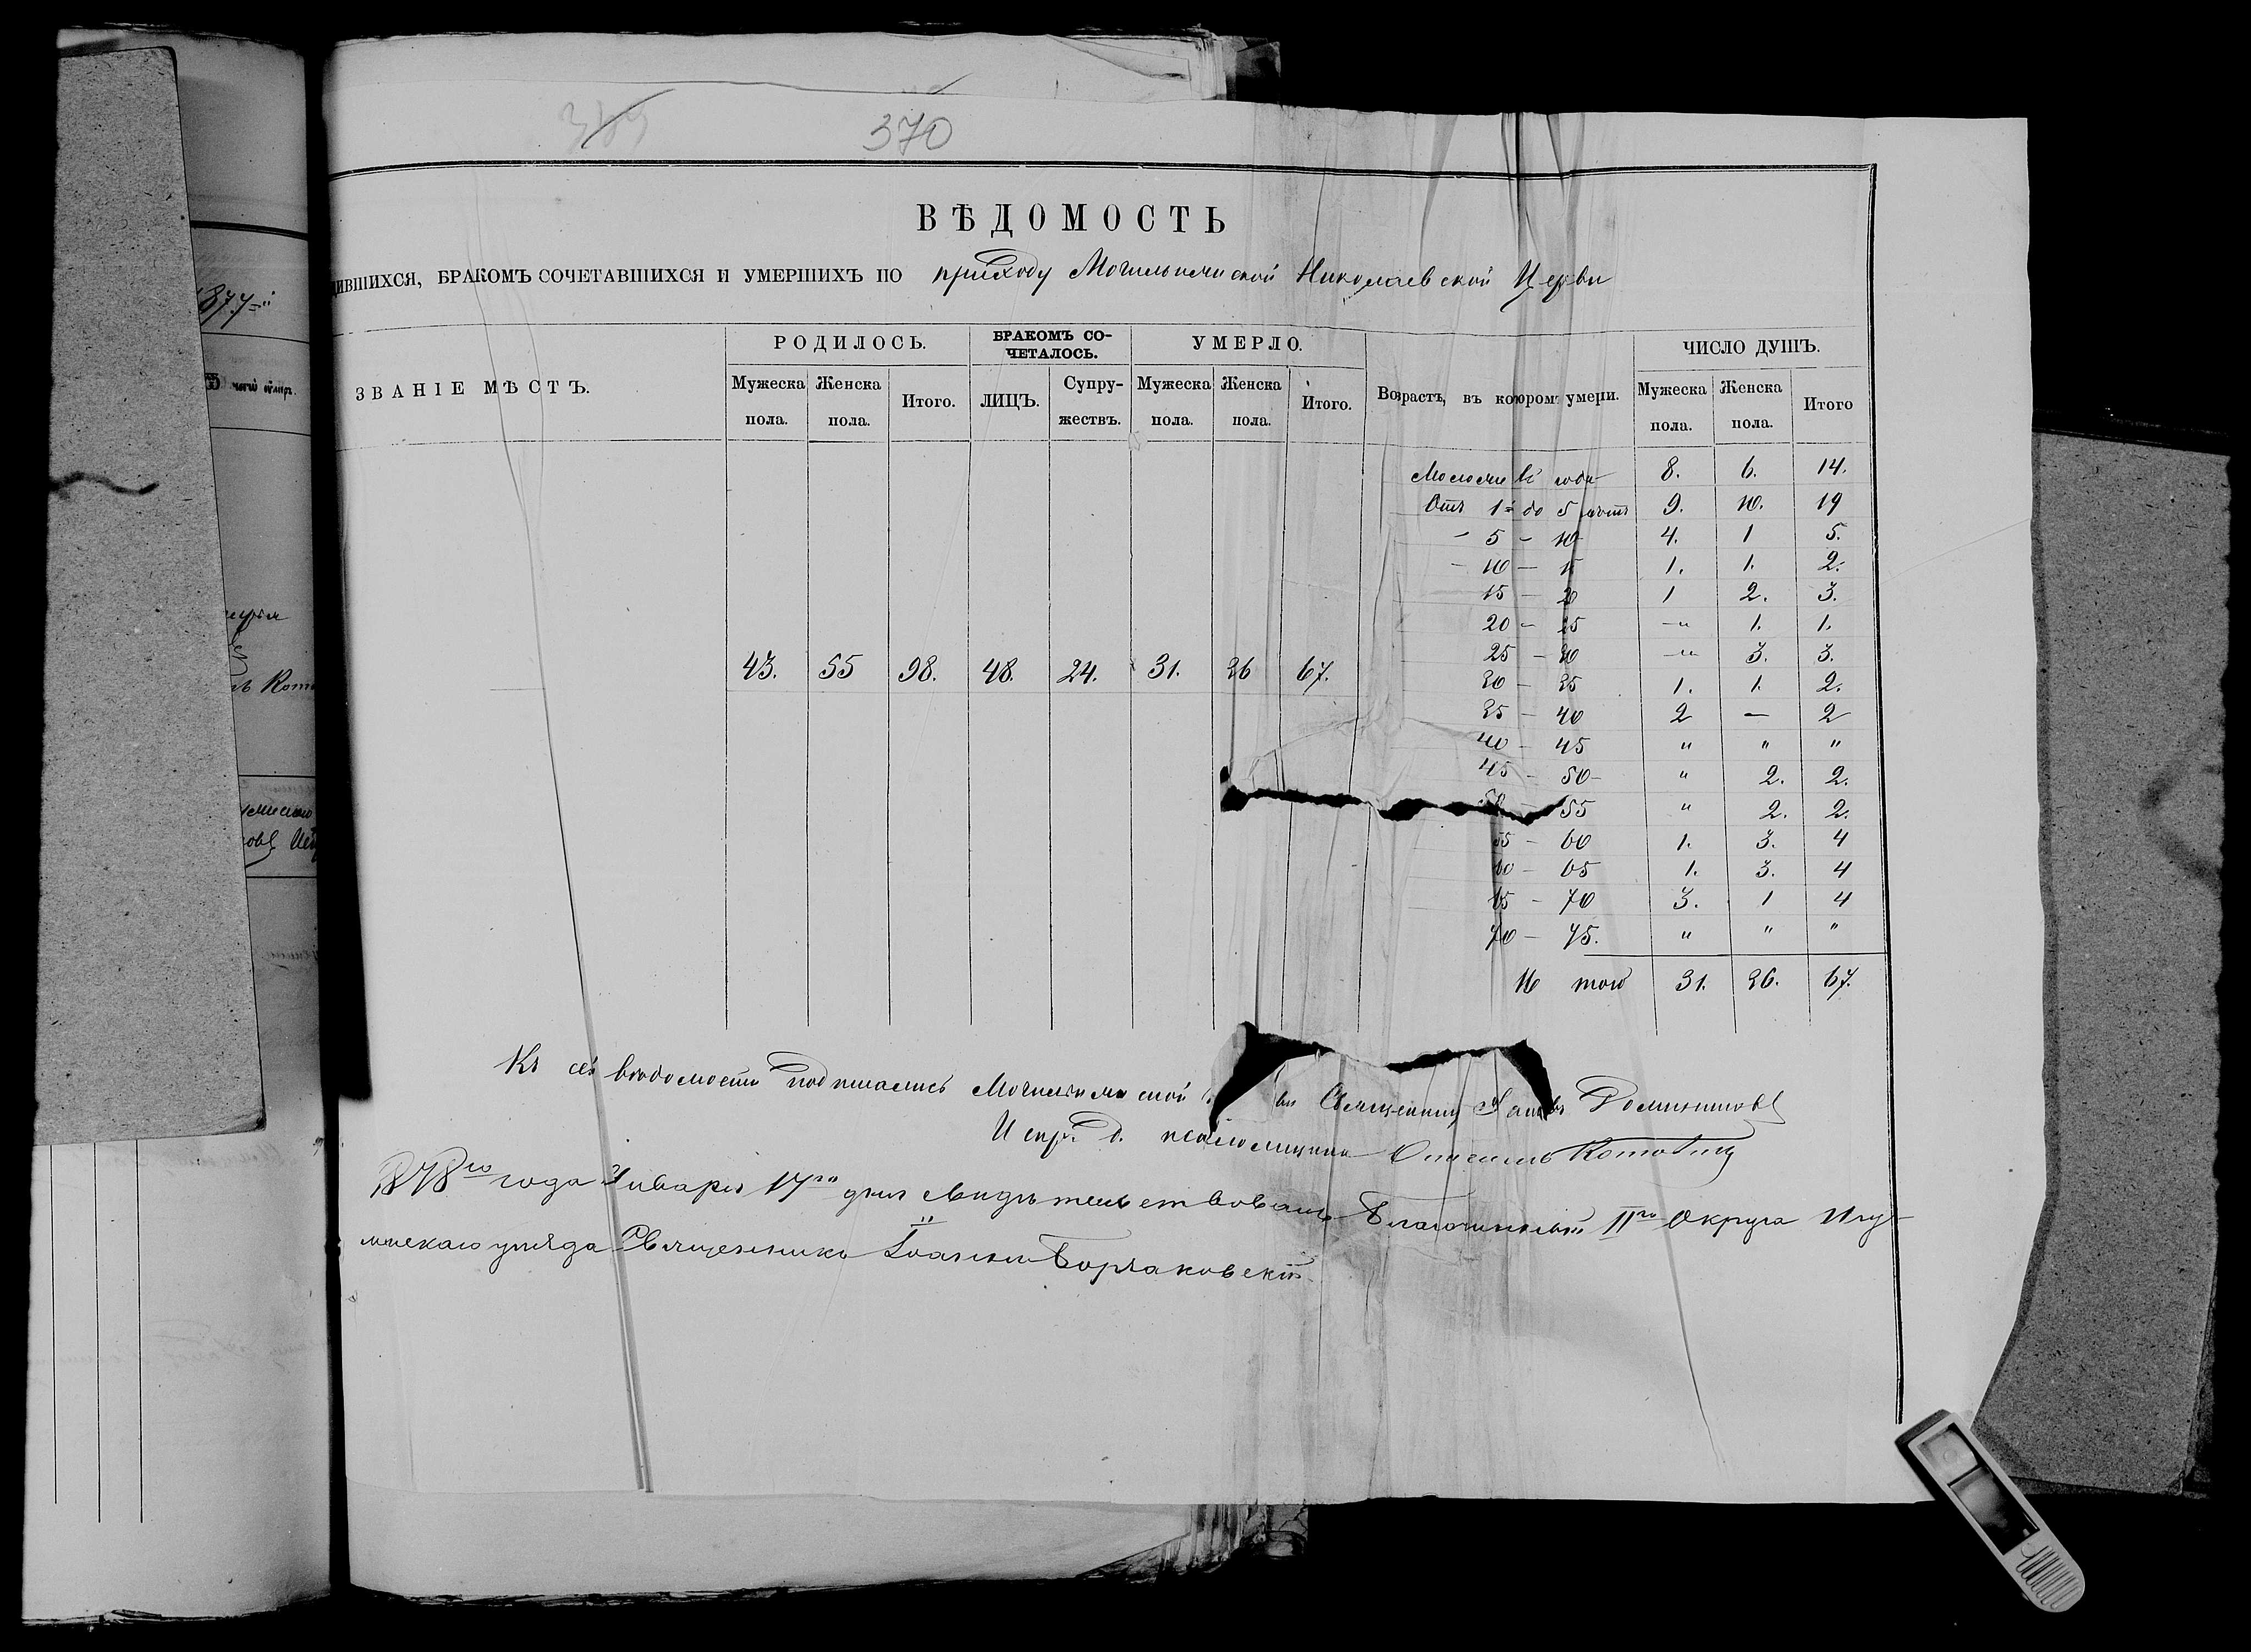 370
ВѢДОМОСТЬ
ДИВШИХСЯ, БРАКОМЪ СОЧЕТАВШИХСЯ И УМЕРШИХЪ ПО приходу Могильнянской Николаевской Церкви
ЗВАНІЕ МѢСТЪ. РОДИЛОСЬ. БРАКОМЪ СОЧЕТАЛОСЬ. УМЕРЛО. Возрастъ, въ которомъ умерли. ЧИСЛО ДУШЪ.
Мужеска пола. Женска пола. Итого. ЛИЦЪ. Супружествъ. Мужеска пола. Женска пола. Итого. Мужеска пола. Женска пола. Итого
43. 55 98. 48. 24. 31. 36 67.
года 8. 6. 14.
Отъ 1 до 5 лѣтъ 9. 10. 19
- 5 - 10 4. 1 5.
- 10 - 15 1. 1. 2.
15 - 20 1 2. 3.
20 - 25 -" 1. 1.
25 - 30 -" 3. 3.
30 - 35 1. 1. 2.
35 - 40 2 - 2
40 - 45 " " "
45 - 50 - " 2. 2.
50 55 " 2. 2.
55 - 60 1. 3. 4
60 - 65 1. 3. 4
65 - 70 3. 1 4
70 - 75. " " "
И того 31. 36. 67.
Къ сей вѣдомости подписались Священникъ
Испр. д. псаломщика Котовичъ
1878го года Января 17го дня свидѣтельствовалъ Благочинный IIго Округа Игу-
менскаго уѣзда Священникъ Іоаннъ
1877